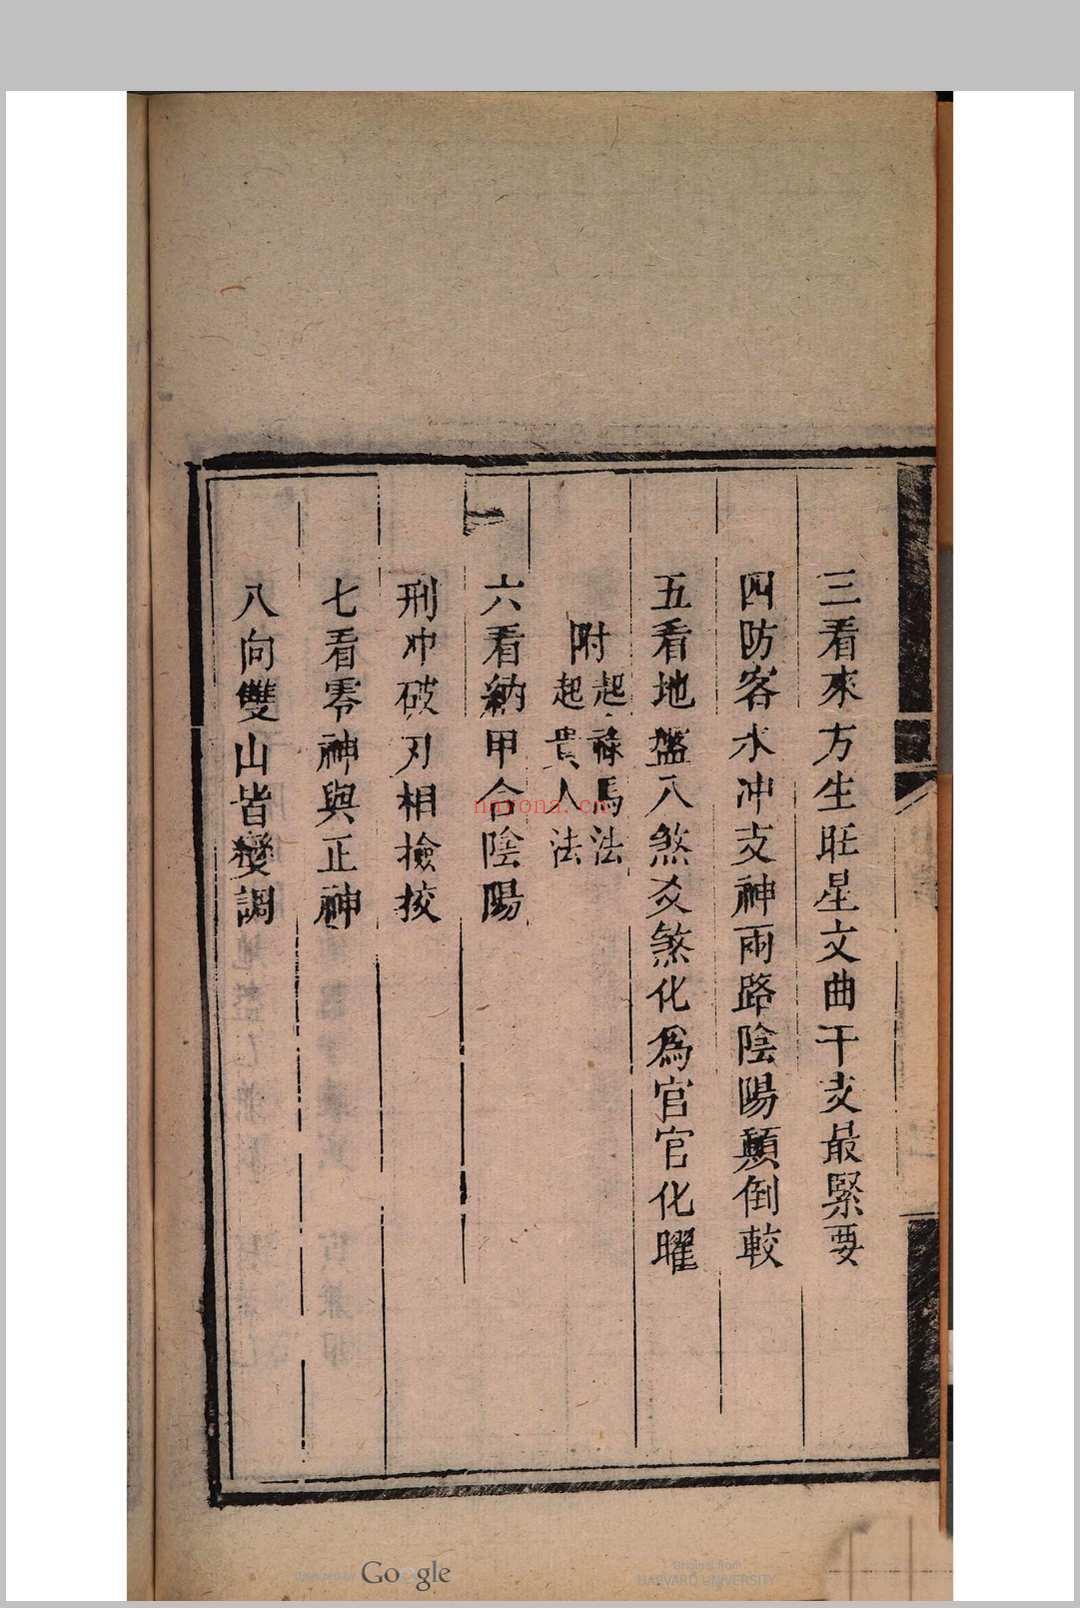 三看來方生旺星文曲干支最緊要
四防客水冲支神兩路陰陽顛倒較
五看地盤八煞爻煞化爲官官化曜
附起祿馬法
起貴人法
六看納甲合陰陽
刑冲破刃相檢挍
七看零神與正神
八向雙山皆變調
naxona.cn
Digitized by Google
Original from
HARVARD UNIVERSITY